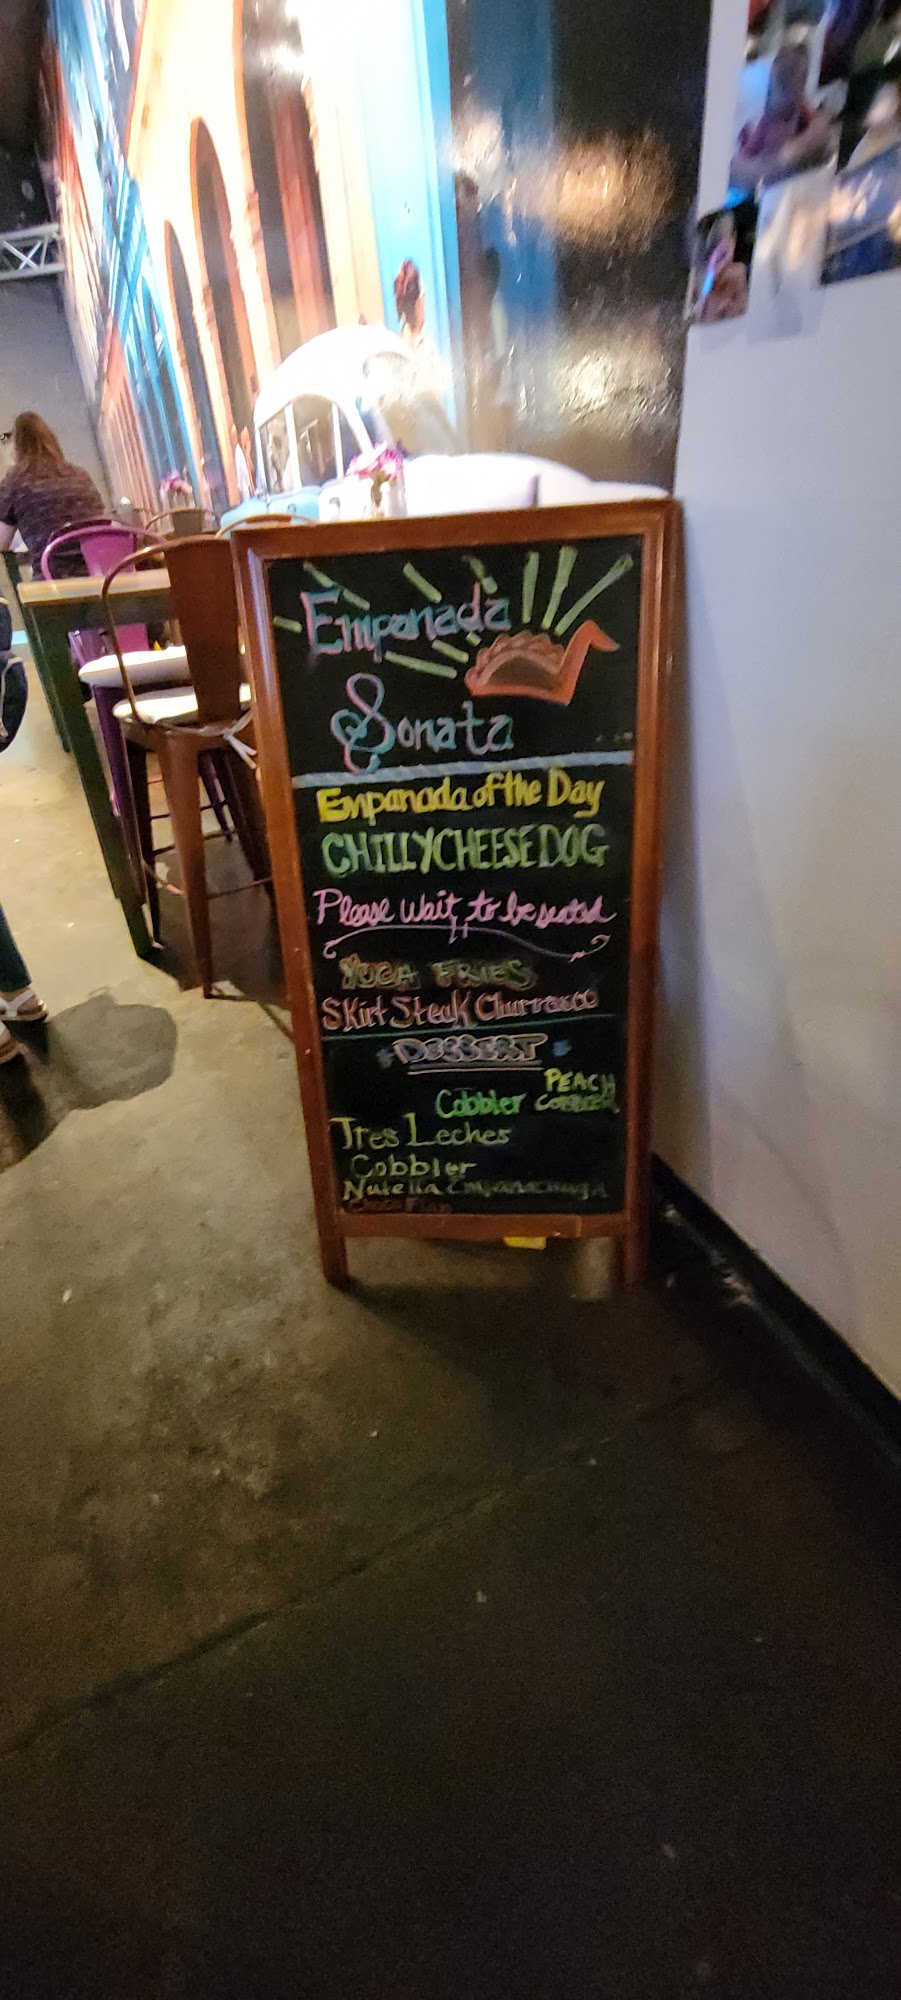 Empanada
Sonata
Empanada of the Day
CHILLY CHEESE DOG
Please wait to be seated
YUCA FRIES
Skirt Steak Churrasco
DESSERT
PEACH
Cobbler COBBLER
Tres Leches
Cobbler
Nutella
Flan